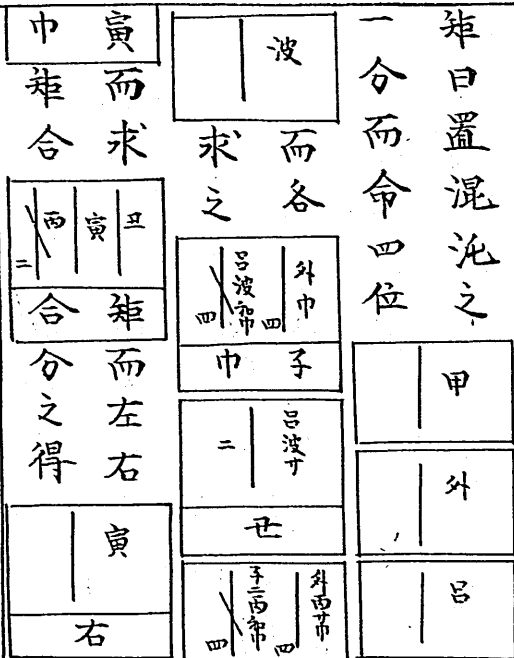 矩曰置混沌之
一分而命四位
甲
外
呂
波
而各
求之
外巾
四
呂波和巾
四
子巾
呂波サ
二
外丙サ巾
四
子二丙和巾
四
寅巾
而求
矩合
丑
寅
丙
二
矩合
而左右
分之得
寅
右